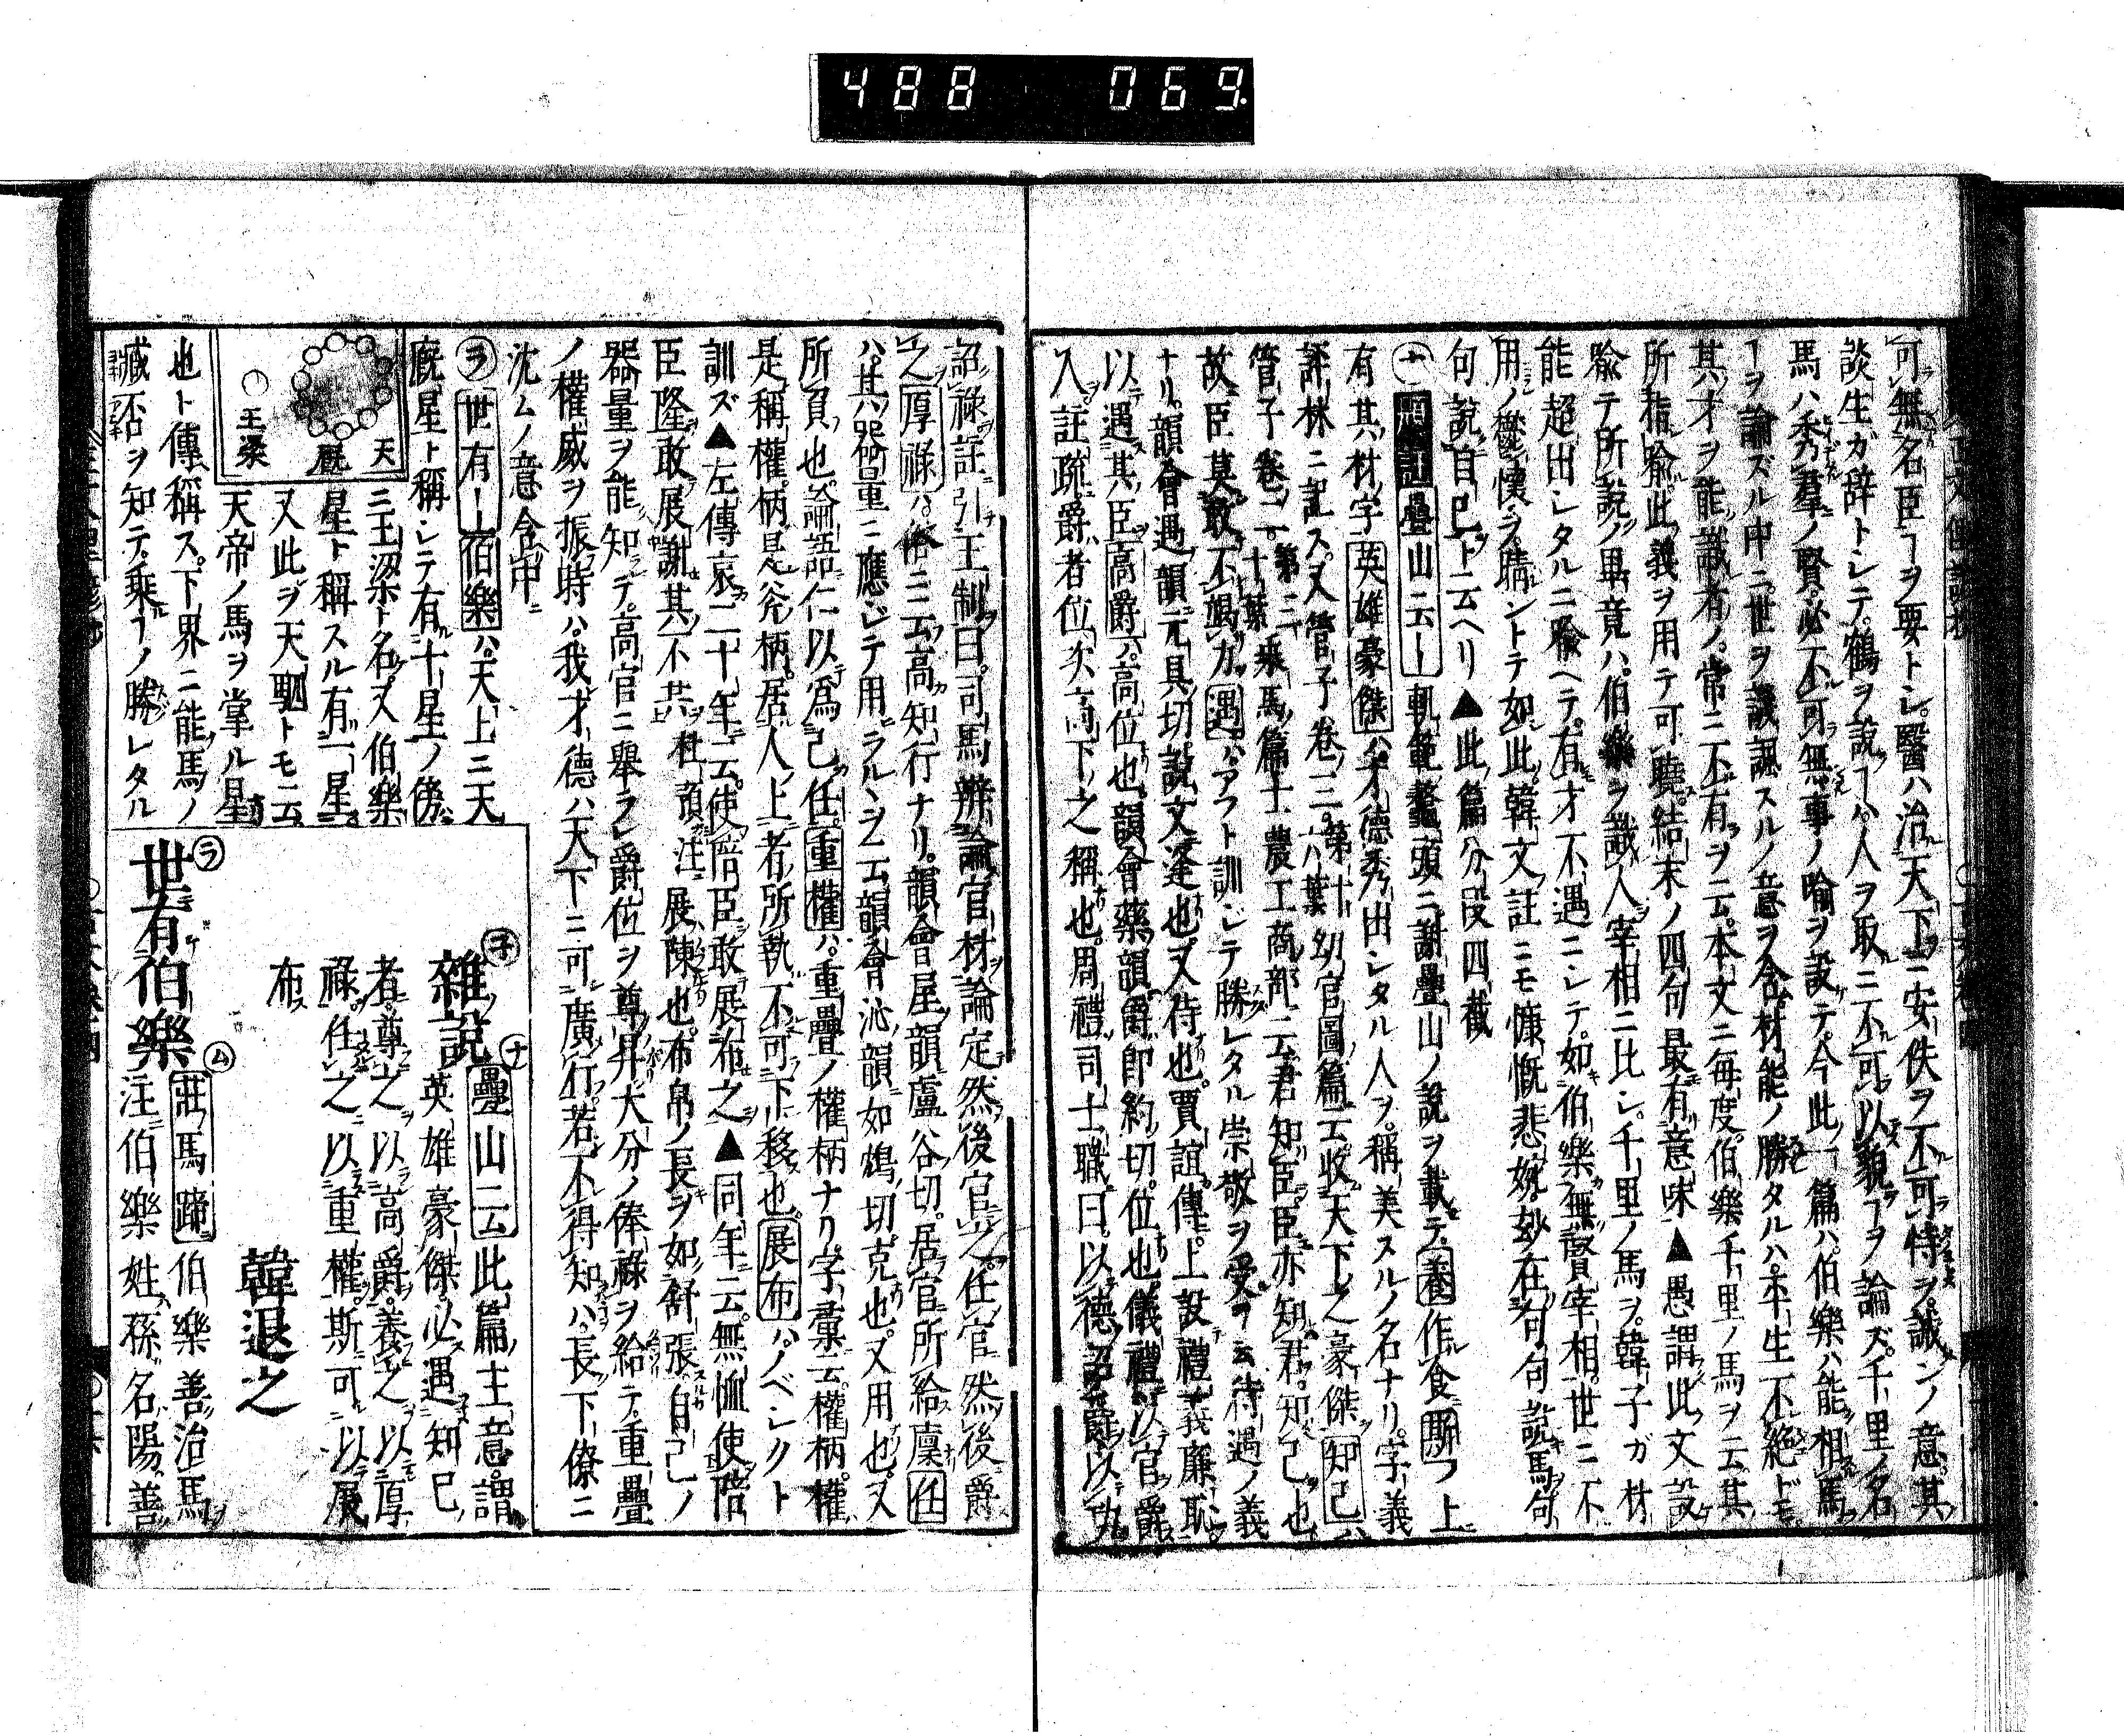 488 069
可無名臣ヿヲ要トシ。醫ハ治天下ニ安佚ヲ不可恃ヲ。誡シノ意。其
談生ガ辞トシテ。鶴ヲ說ヿハ。人ヲ取ニ不可以貌ヿヲ論ズ。千里ノ名
馬ハ秀乃羣ノ賢。必不可無事ノ喻ヲ設テ。今此一篇ハ。伯樂ハ能相馬
ヿヲ論ズル中ニ。世ヲ譏諷スルノ意ヲ含。材能ノ勝タルハ。平生不絕ドモ
其才ヲ能識者ノ。常ニ不有ヲ云。本文ニ毎度。伯樂千里ノ馬ヲ云。其
所指喻此義ヲ用テ可曉。結末ノ四句最有意味▲愚謂此文設
喻テ所說ノ畢竟ハ。伯樂ヲ識人宰相ニ比シ。千里ノ馬ヲ。韓子ガ材
能超出シタルニ喩ヘテ。有才不遇ニシテ。如伯樂無賢宰相。世ニ不
用ノ鬱懷ヲ。晴ントテ如此。韓文註ニモ慷慨悲婉妙在句句說馬句
句說自己ト云ヘリ▲此篇分段四截
ナ題註疊山云ー軌範鼇頭ニ謝疊山ノ說ヲ載テ。養作食斯フ上
有其材字英雄豪傑ハ才德秀出シタル人ヲ。稱美スルノ名ナリ。字義
評林ニ記ス。又管子卷三。第十六葉幼官圖篇云收天下之豪傑知己ハ
管子卷一。第二十葉乘馬篇士農工商部ニ云君知臣臣亦知君。知己也
故臣莫敢不竭力。遇ハアフト訓ジテ勝レタル崇敬ヲ受ヲ云待遇ノ義
ナリ。韻會遇韻元具切。說文逢也。又待也。賈誼傳。上設禮義廉恥
以遇其臣高爵ハ。高位也。韻會藥韻爵即約切。位也。儀禮以官爵
入註疏。爵者位次高下之稱也。周禮司士職曰。以德詔爵以功
詔祿註引王制曰。司馬辨論官材論定然後官之。任官然後爵
之厚祿ハ。俗ニ云高知行ナリ。韻會屋韻盧谷切。居官所給廩任
ハ。其器量ニ應ジテ用ラルヽヲ云韻會沁韻如鴆切。克也。又用也。又
所負也。論語仁以爲己任。重權ハ。重疊ノ權柄ナリ。字彙云。權柄。權
是稱權。柄是斧柄。居人上者所執不可下移也。展布ハ。ノベシクト
訓ズ▲左傳哀二十年云。使陪臣敢展布之▲同年云。無恤使陪
臣隆敢展謝其不共杜預注展陳也。布帛ノ長ヲ如舒張自己ノ
器量ヲ能知テ。高官ニ舉ラレ爵位ヲ尊昇大分ノ俸祿ヲ給テ。重疊
ノ權威ヲ振時ハ。我才德ハ天下ニ可廣行。若不得知ハ。長下僚ニ
沈ムノ意含中
ラ世有ー伯樂ハ。天上ニ天
廐星ト稱シテ有十星ノ傍
ニ王梁ト名。又伯樂
星ト稱スル有一星
又此ヲ天駟トモ云
天帝ノ馬ヲ掌ル星
也ト傳稱ス。下界ニ能馬ノ
臧不ヲ知テ。乘ヿノ勝レタル
天
廐
王梁
子雜說
ナ疊山云此篇主意。謂
英雄豪傑必遇知己
者。尊之以高爵。養之以厚
祿。任之以重權。斯可以展
布
韓退之
ラ世有伯樂ム莊馬蹄伯樂善治馬
注伯樂姓孫名陽善